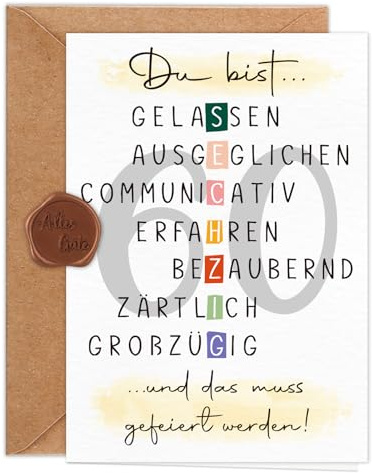 Du bist...
GELASSEN
AUSGEGLICHEN
COMMUNICATIV
60
ERFAHREN
BEZAUBERND
ZÄRTLICH
GROßZÜGIG
...und das muss
gefeiert werden!
Alles
Gute